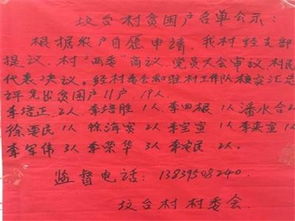 坟台村贫困户名单公示：
根据农户自愿申请，我村经支部
提议，村"两委"商议，党员大会审议村民
代表决议，经村委会和驻村工作队核实汇总
评定出贫困户11户，19人。
李培正2人 李培胜1人 李田根1人 潘水合2人
徐要民1人 徐海宾2人 李宝宣1人 李来宣1人
李军伟3人 李荣华3人 李宪民2人.
监督电话：13839508240.
坟台村村委会.